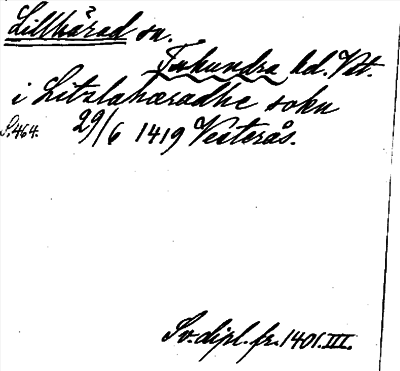 Lillhärad sn.
Tuhundra hd. Vst.
i Litzlahæradhe sokn
S. 464. 29/6 1419 Vesterås.
Sv. dipl. fr. 1401. III.